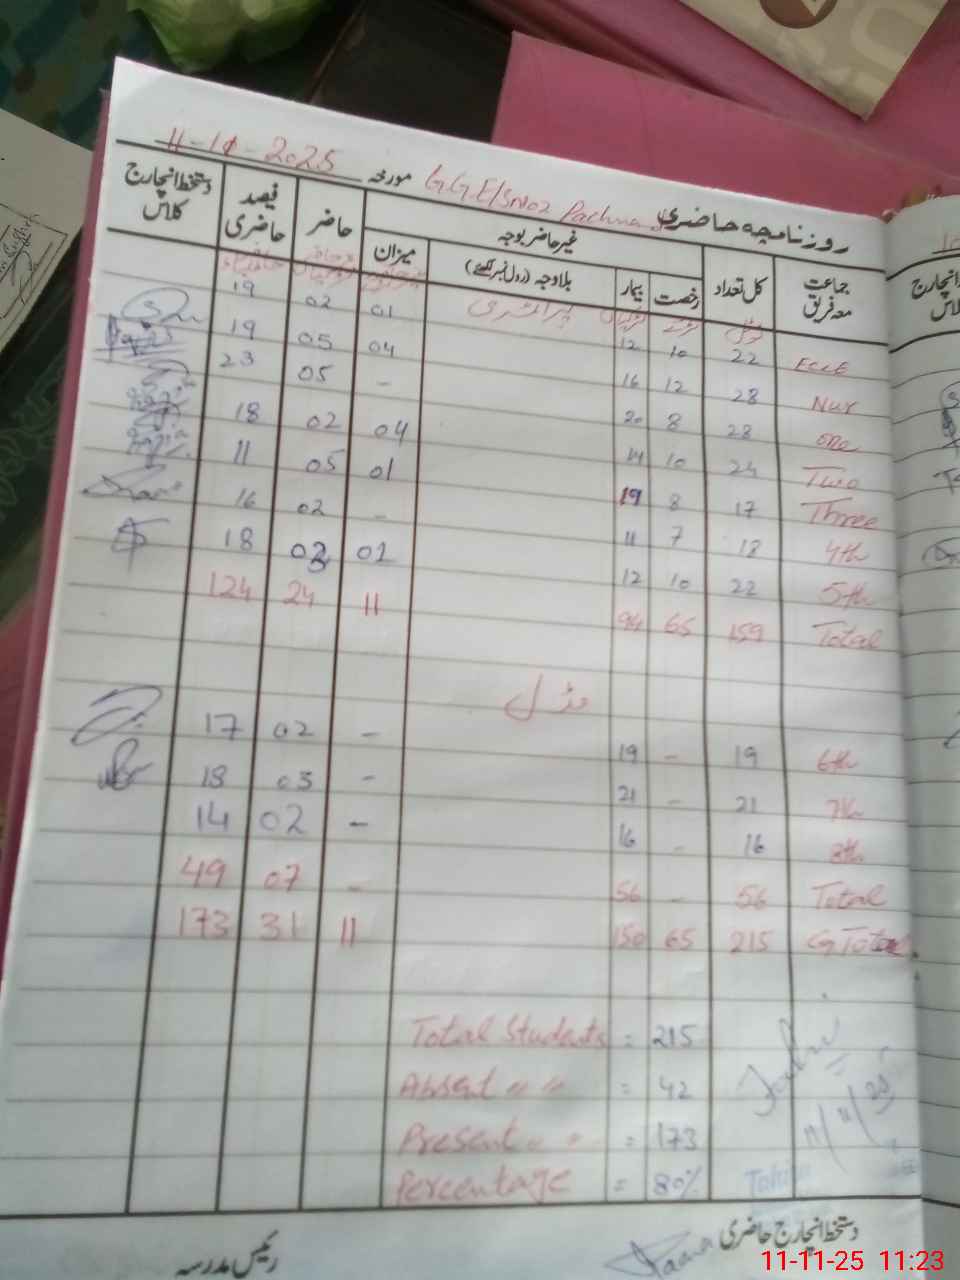 11-11-2025 مورخہ G.G.E/S No2 روزنامچہ حاضری
جماعت معہ فریق کل تعداد غیر حاضر بوجہ حاضر فیصد حاضری دستخط انچارج کلاس
رخصت بیمار بلاوجہ (رول نمبر لکھئے) میزان
ECCE 22 10 12 01 02 19
Nur 28 12 16 04 05 19
One 28 8 20 - 05 23
Two 24 10 14 04 02 18
Three 17 8 19 01 05 11
4th 18 7 11 - 02 16
5th 22 10 12 01 03 18
Total 159 65 94 11 24 124
مڈل
6th 19 - 19 - 02 17
7th 21 - 21 - 03 18
8th 16 - 16 - 02 14
Total 56 - 56 - 07 49
G Total 215 65 150 11 31 173
Total Students = 215
Absent " " = 42
Present " " = 173
Percentage = 80%
11/11/25
دستخط انچارج حاضری رئیس مدرسہ
11-11-25 11:23